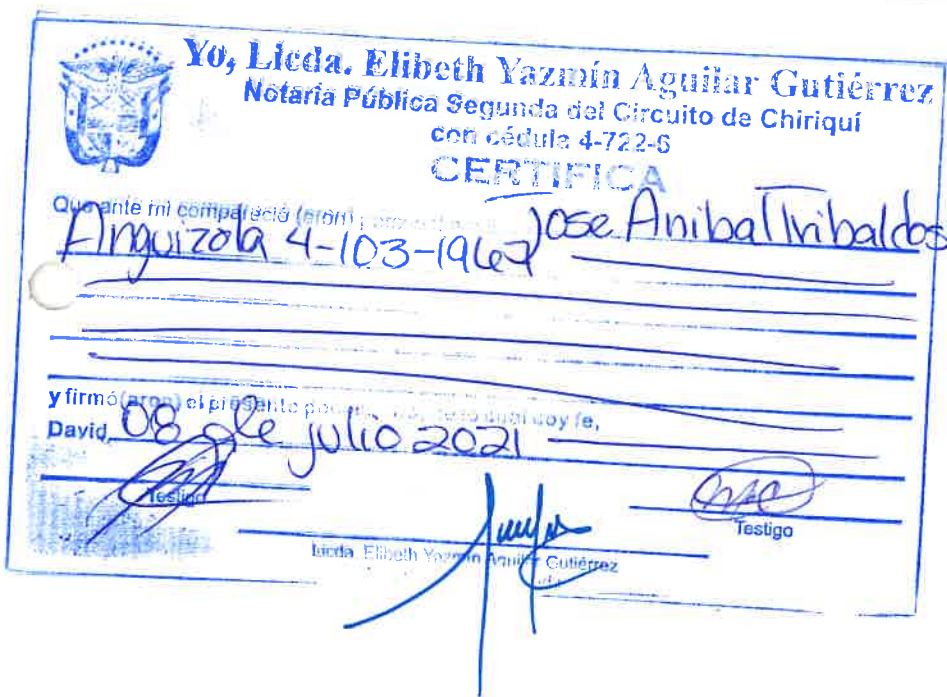 Yo, Licda. Elibeth Yazmín Aguilar Gutiérrez
Notaria Pública Segunda del Circuito de Chiriquí
con cédula 4-722-6
CERTIFICA
Que ante mí compareció (eron)
Jose Anibal Tribaldos
Anguizola 4-103-1967
y firmó(aron) el presente
de lo cual doy fe,
David, 08 de julio 2021
Testigo
Testigo
Licda. Elibeth Yazmín Aguilar Gutiérrez